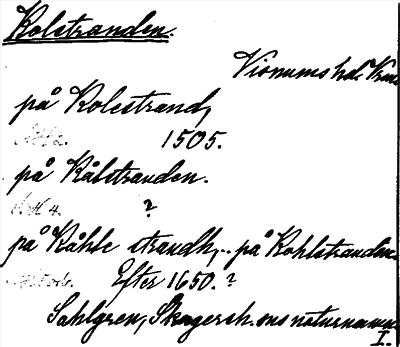 Kolstranden.
Visnums hd. Vrm
på Kolestrand,
1505.
på Kålstranden.
?
på Kåhle strandh,.. på Kohlstranden
Efter 1650.?
Sahlgren, Skagersh. sns naturnamn
I.